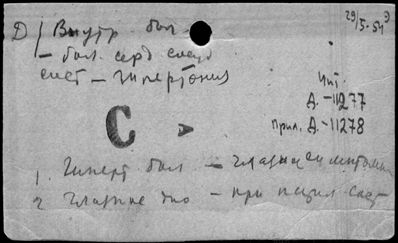 29/5-54
Д/ Внутр. бол.
- бол. серд сосуд
сист - гипертония
Чит.
Д.-11277
Прил. Д.-11278
С >
1. Гиперт бол - глазн симптомы
2 глазное дно - при псих сост-